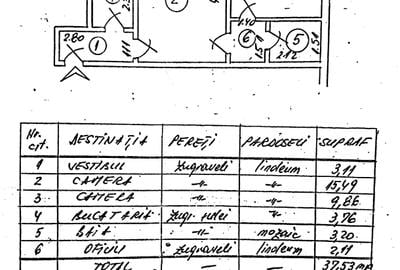 2.80
1
6
5
2.12
1.51
Nr. crt. DESTINAȚIA PEREȚI PARDOSELI SUPRAF
1 VESTIBUL zugraveli linoleum 3,11
2 CAMERA -"- -"- 15,49
3 CAMERA -"- -"- 9,86
4 BUCATARIE -"- 3,76
5 BAIA -"- mozaic 3,20
6 OFICIU zugraveli linoleum 2,11
TOTAL — — 37,53